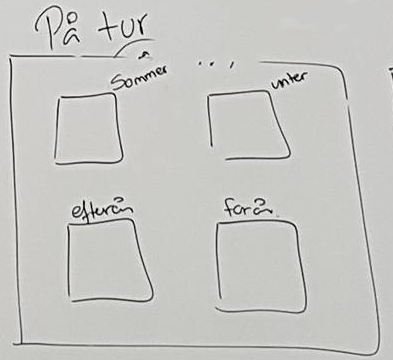 På tur
Sommer ... vnter
efterår forår